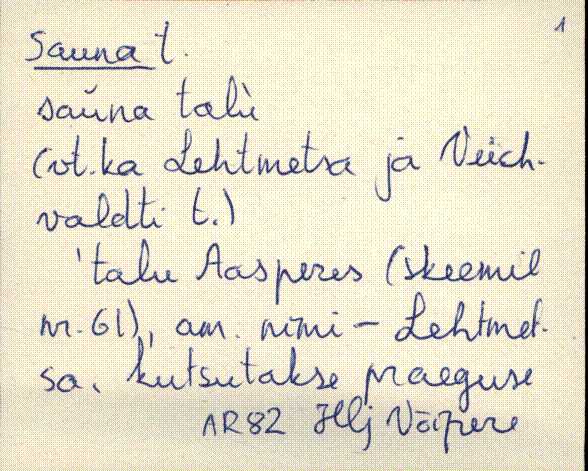 1
Sauna t.
saŭna talù
(vt. ka Lehtmetsa ja Veich-
valdti t.)
'talu Aasperes (skeemil
nr. 61), am. nimi – Lehtmet-
sa, kutsutakse praeguse
AR82 Hlj Võipere